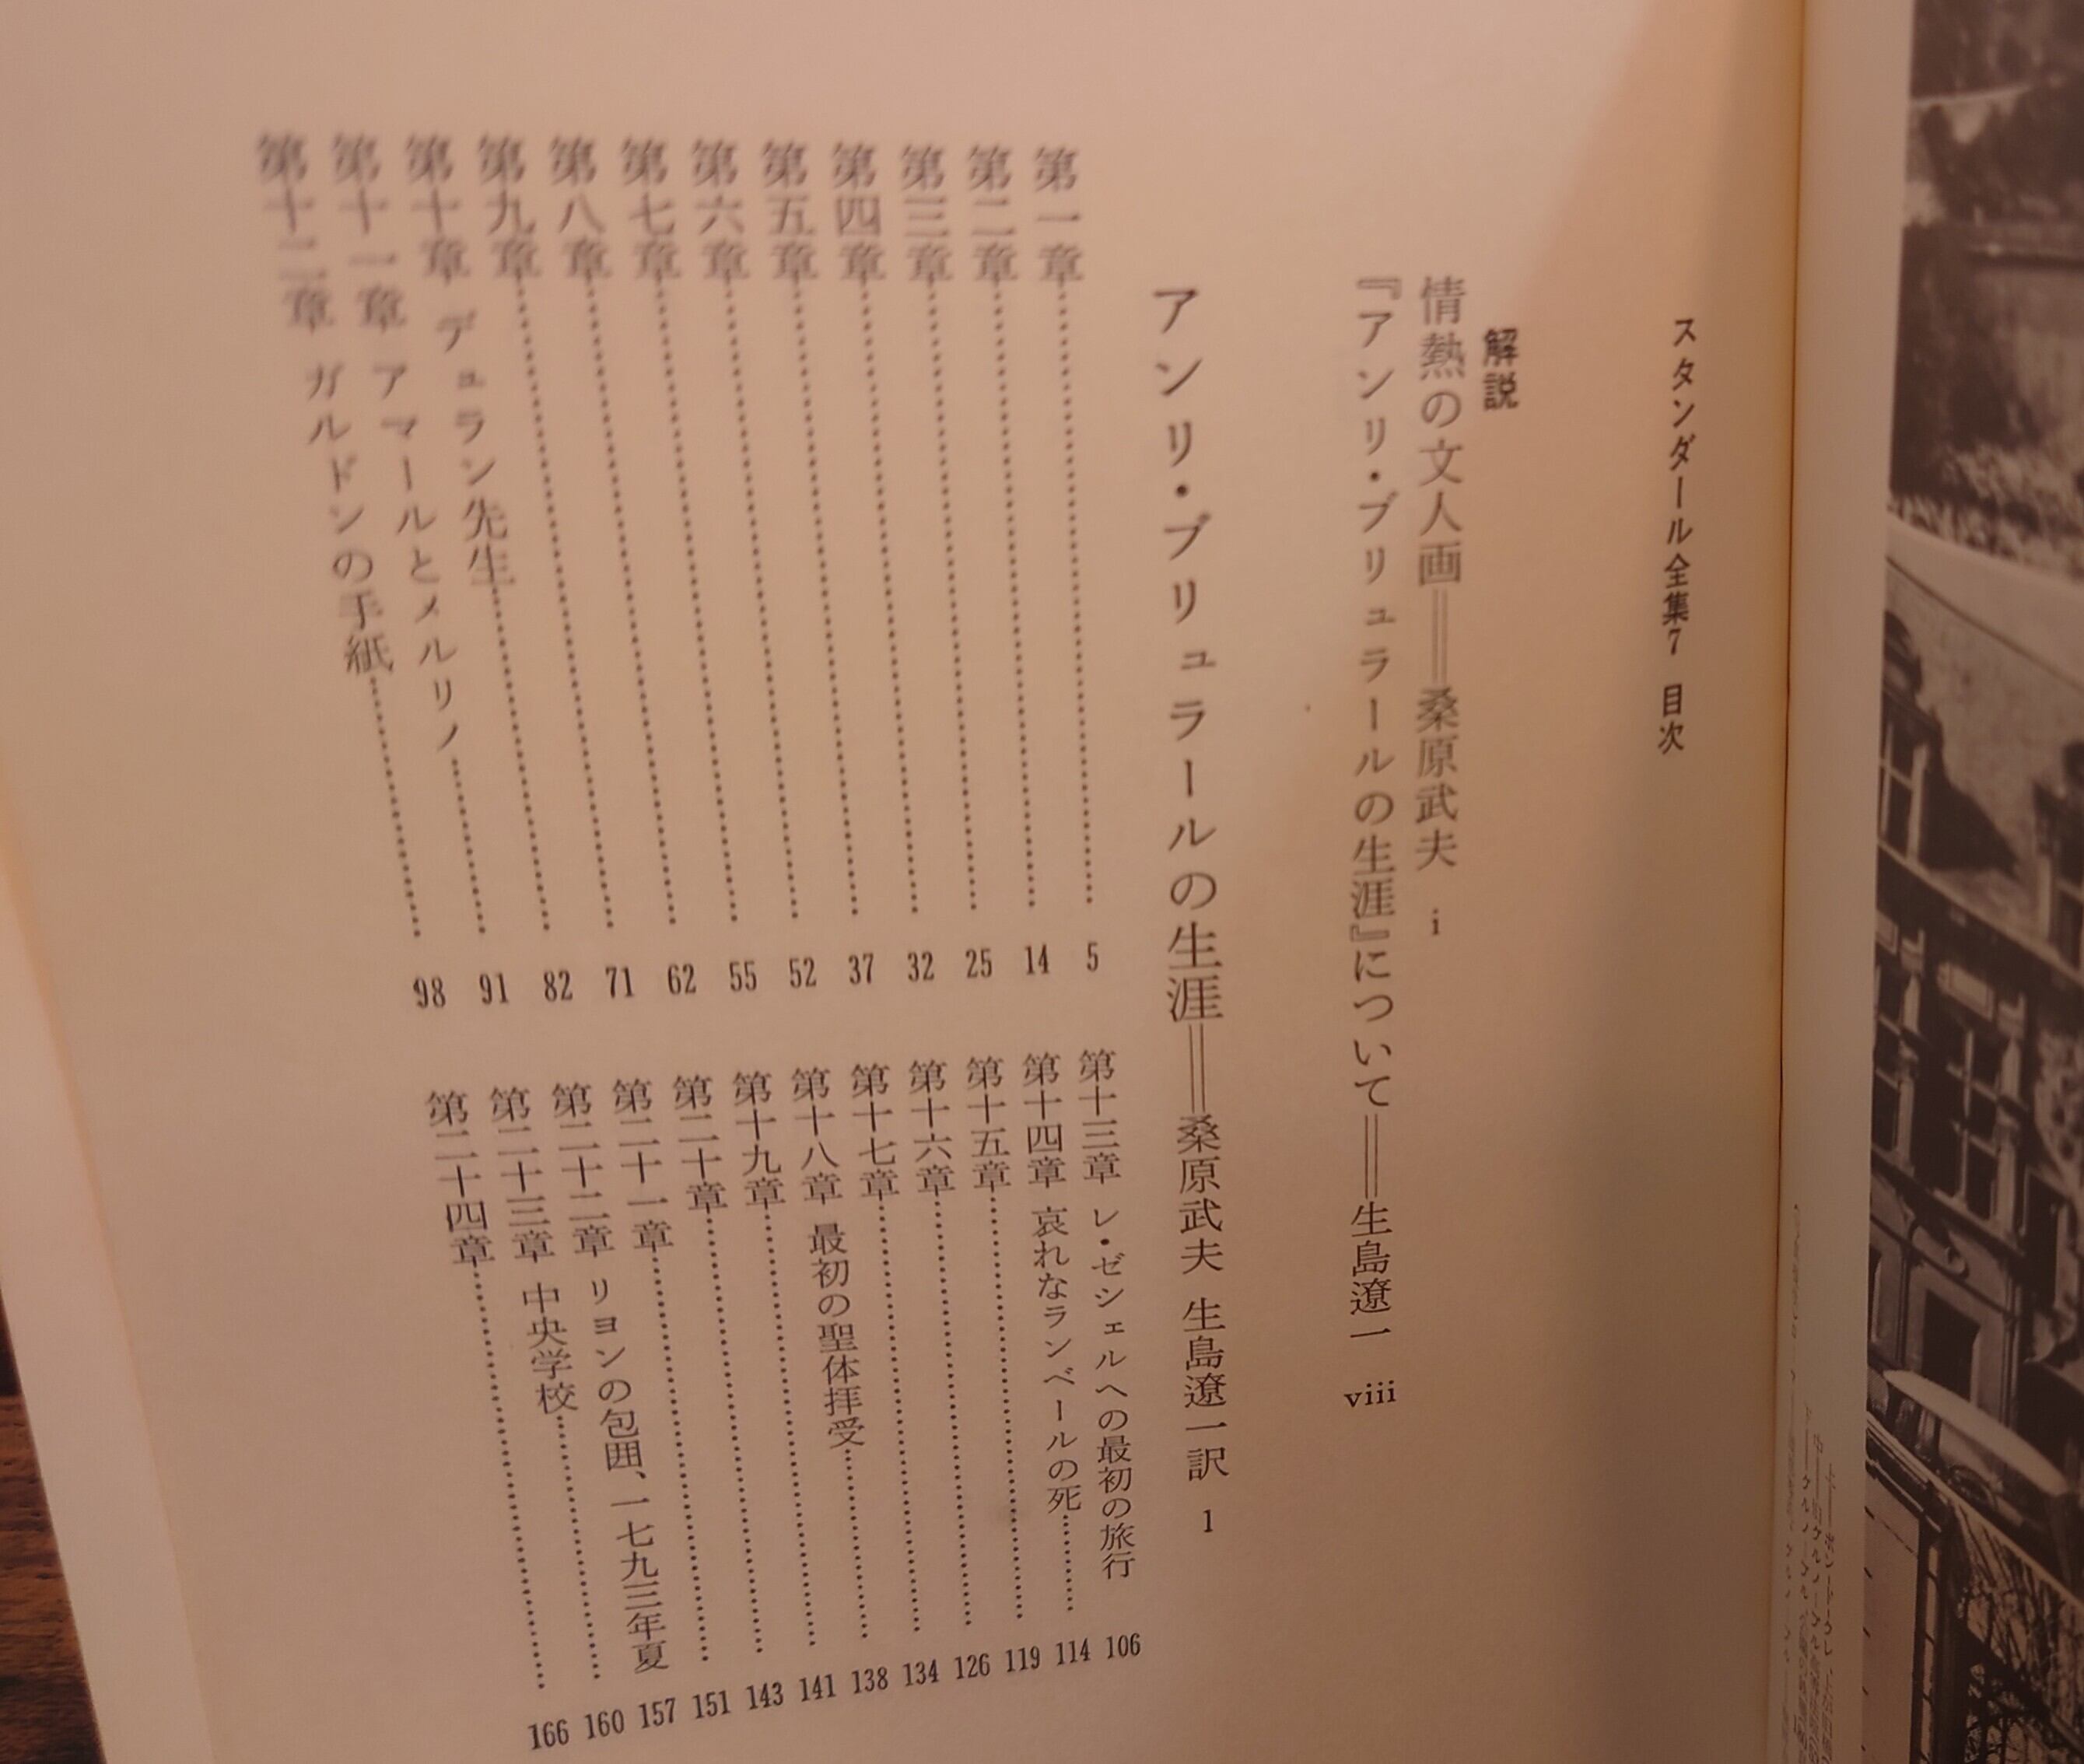 スタンダール全集7 目次
解説
情熱の文人画══桑原武夫 i
『アンリ・ブリュラールの生涯』について══生島遼一 viii
アンリ・ブリュラールの生涯══桑原武夫 生島遼一訳 1
第一章……5
第二章……14
第三章……25
第四章……32
第五章……37
第六章……52
第七章……55
第八章……62
第九章……71
第十章 デュラン先生……82
第十一章 アマールとメルリノ……91
第十二章 ガルドンの手紙……98
第十三章 レ・ゼシェルへの最初の旅行 106
第十四章 哀れなランベールの死……114
第十五章……119
第十六章……126
第十七章……134
第十八章 最初の聖体拝受……138
第十九章……141
第二十章……143
第二十一章……151
第二十二章 リヨンの包囲、一七九三年夏 157
第二十三章 中央学校……160
第二十四章……166